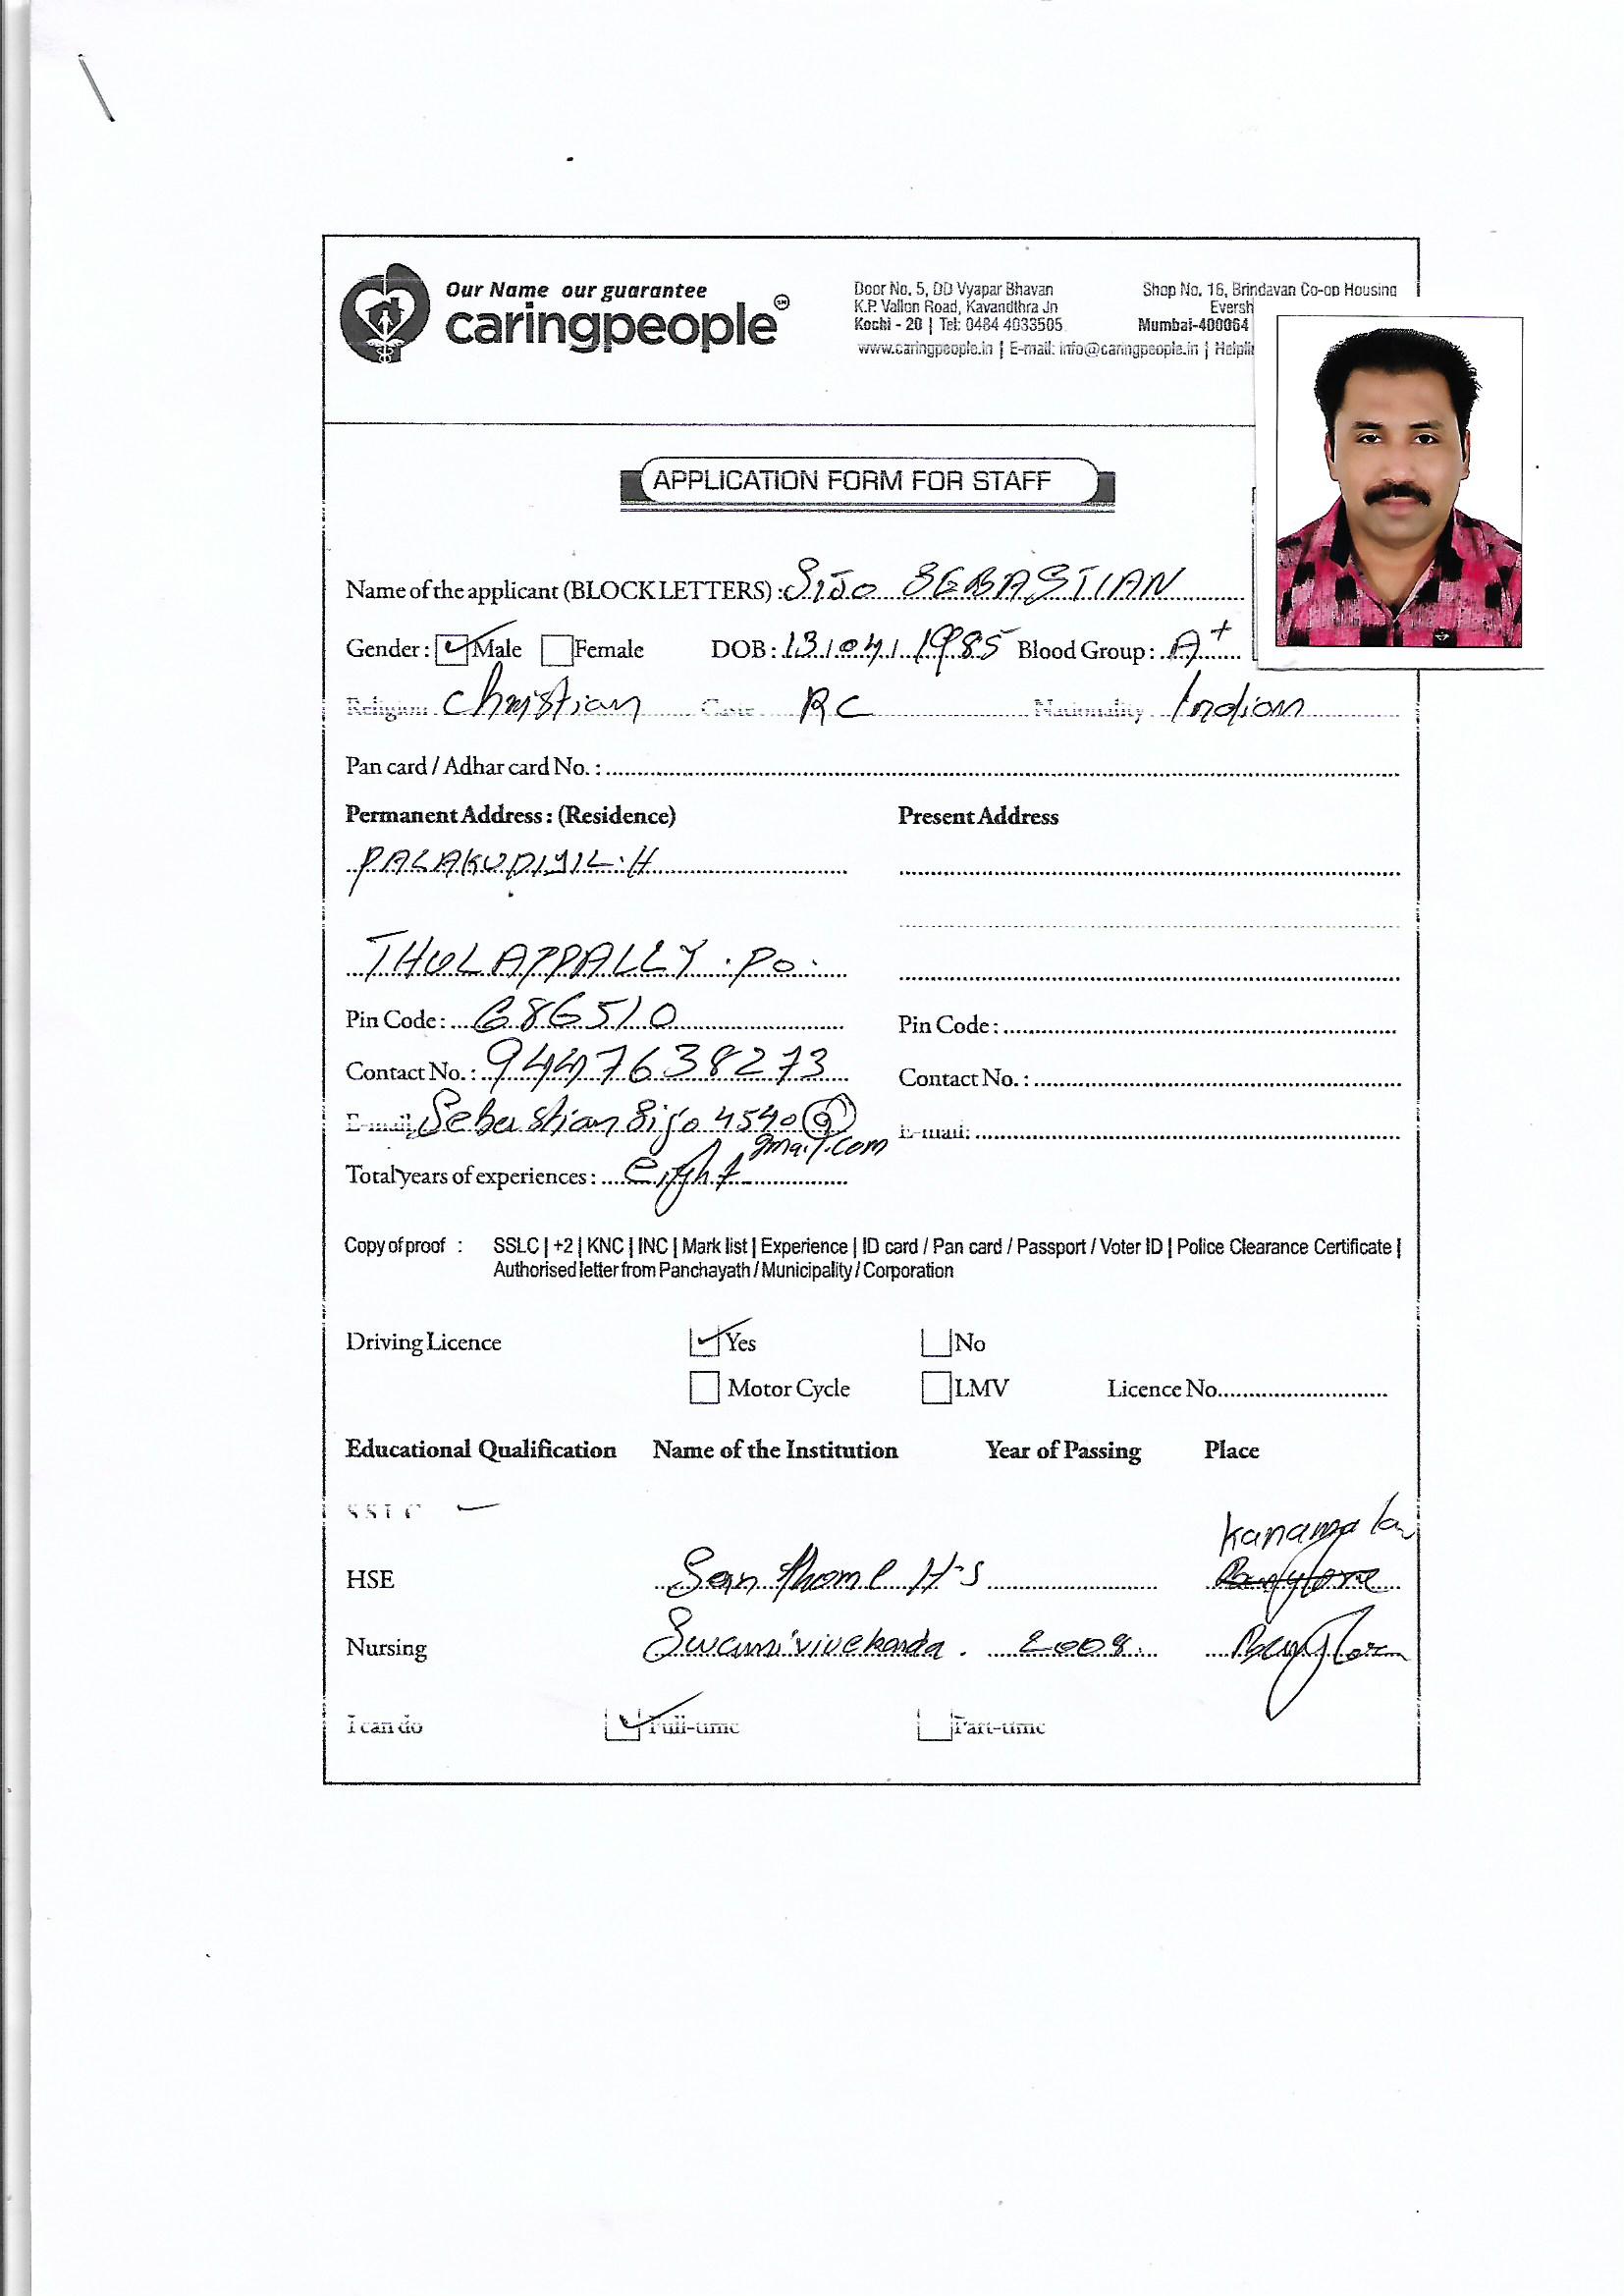 Our Name our guarantee
caringpeople SM
Door No. 5, DD Vyapar Bhavan
K.P. Vallon Road, Kavandthra Jn
Kochi - 20 | Tel: 0484 4033505
Shop No. 16, Brindavan Co-op Housing
Eversh
Mumbai-400064
www.caringpeople.in | E-mail: info@caringpeople.in | Helpli
APPLICATION FORM FOR STAFF
Name of the applicant (BLOCK LETTERS) : SIJO SEBASTIAN
Gender : Male Female DOB : 13/04/1985 Blood Group : A+
Religion Christian Caste RC Nationality Indian
Pan card / Adhar card No. :
Permanent Address : (Residence) Present Address
PALAKUDIYIL.H
THULAPPALLY.PO.
Pin Code : 686510 Pin Code :
Contact No. : 9447638273 Contact No. :
E-mail: Sebastiansijo4540@ E-mail:
gmail.com
Total years of experiences : eight
Copy of proof : SSLC | +2 | KNC | INC | Mark list | Experience | ID card / Pan card / Passport / Voter ID | Police Clearance Certificate |
Authorised letter from Panchayath / Municipality / Corporation
Driving Licence Yes No
Motor Cycle LMV Licence No.
Educational Qualification Name of the Institution Year of Passing Place
SSLC
Kanamala
HSE San thome H.S
Nursing Swamivivekanda . 2008.
I can do Full-time Part-time